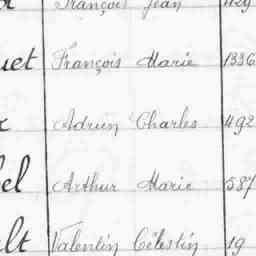 François Jean 1129
uet François Marie 1336
Adrien Charles 492
el Arthur Marie 587
lt Valentin Célestin 19